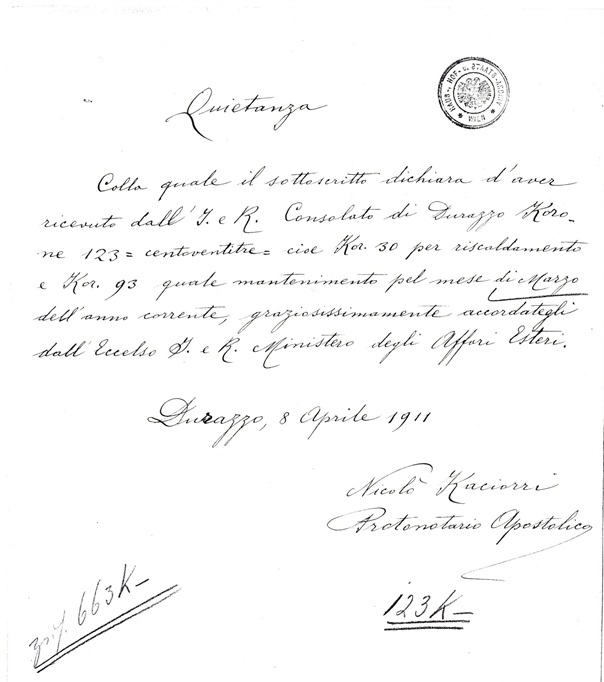 HAUS-, HOF- U. STAATS-ARCHIV
WIEN
Quietanza
Colla quale il sottoscritto dichiara d'aver
ricevuto dall' I. e R. Consolato di Durazzo Koro-
ne 123 = centoventitre = cioè Kor. 30 per riscaldamento
e Kor. 93 quale mantenimento pel mese di Marzo
dell'anno corrente, graziosissimamente accordategli
dall'Eccelso I. e R. Ministero degli Affari Esteri.
Durazzo, 8 Aprile 1911
Nicolò Kaciorri
Protonotario Apostolico
663K–
123K–